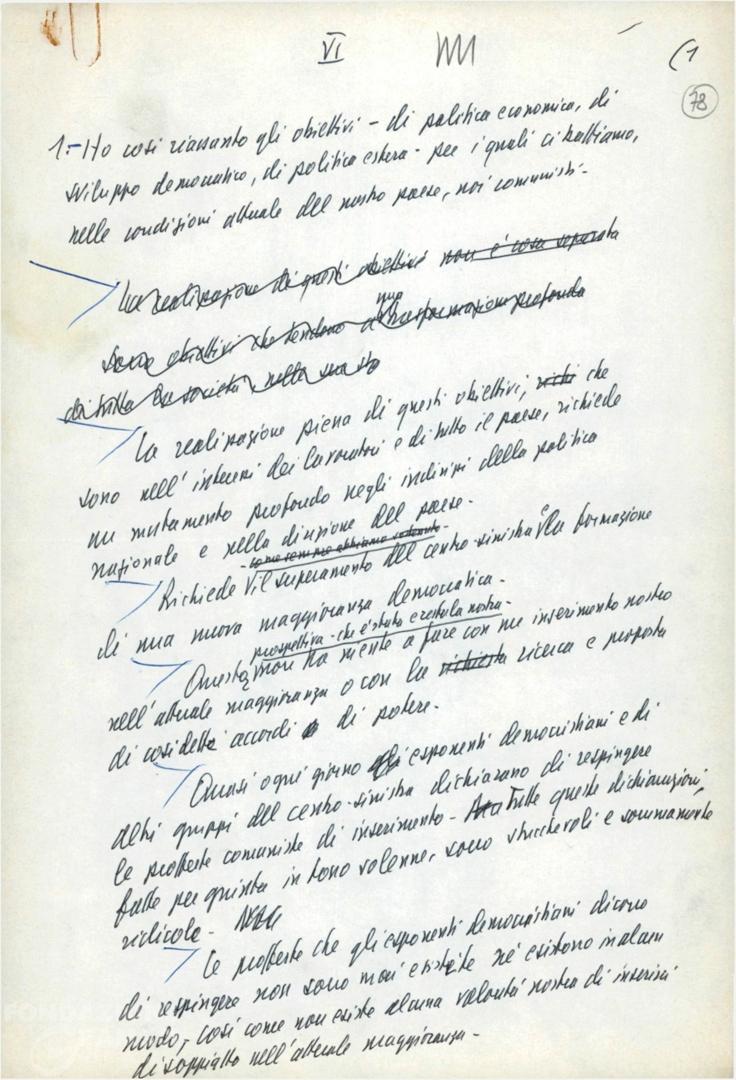 VI
(1
78
1.- Ho così riassunto gli obiettivi - di politica economica, di
sviluppo democratico, di politica estera - per i quali ci battiamo,
nelle condizioni attuale del nostro paese, noi comunisti -
La realizzazione di questi obiettivi non è cosa separata
sono obiettivi che tendono a una trasformazione profonda
di tutta la società, nella sua
La realizzazione piena di questi obiettivi, richi che
sono nell'interesse dei lavoratori e di tutto il paese, richiede
un mutamento profondo negli indirizzi della politica
nazionale e nella direzione del paese.
- come sempre abbiamo sostenuto -
Richiede il superamento del centro-sinistra e la formazione
di una nuova maggioranza democratica.
prospettiva - che è stata e resta la nostra -
Questa non ha niente a fare con un inserimento nostro
nell'attuale maggioranza o con la richiesta ricerca e proposta
di cosidetti accordi di potere.
Quasi ogni giorno gli esponenti democristiani e di
altri gruppi del centro-sinistra dichiarano di respingere
le profferte comuniste di inserimento - Tutte queste dichiarazioni,
fatte per giunta in tono solenne, sono stucchevoli e sommamente
ridicole -
Le profferte che gli esponenti democristiani dicono
di respingere non sono mai esistite né esistono in alcun
modo, così come non esiste alcuna volontà nostra di inserirci
di soppiatto nell'attuale maggioranza -